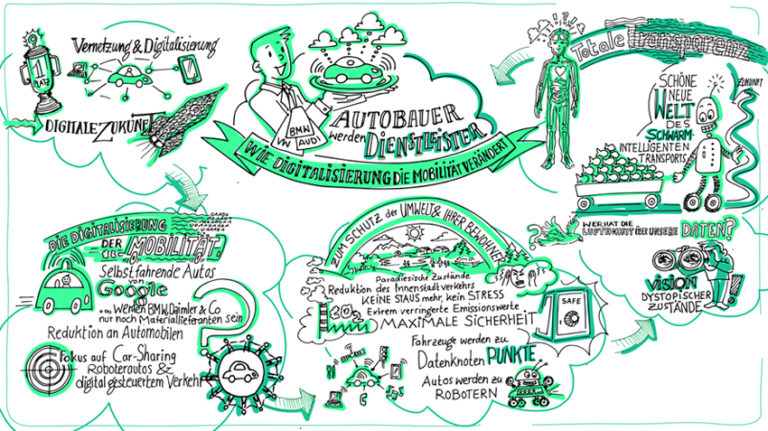 1
PLATZ
Vernetzung & Digitalisierung
DIGITALE ZUKUNFT
BMW
VW
AUDI
AUTOBAUER
werden DIENSTLEISTER
WIE DIGITALISIERUNG DIE MOBILITÄT VERÄNDERT
Totale Transparenz
SCHÖNE
NEUE
WELT
DES
SCHWARM-
INTELLIGENTEN
TRANSPORTS
ZUKUNFT
WER HAT DIE
LUFTHOHEIT ÜBER UNSERE DATEN?
VISION
DYSTOPISCHER
ZUSTÄNDE
DIE DIGITALISIERUNG
DER
MOBILITÄT
Selbstfahrende Autos
von
Google
... Werden BMW, Daimler & Co
nur noch Materiallieferanten sein
?
Reduktion an Automobilen
Fokus auf Car-Sharing
Roboterautos &
digital gesteuertem Verkehr
ZUM SCHUTZ der UMWELT & IHRER BEWOHNER
Paradiesische Zustände
Reduktion des Innenstadtverkehrs
KEINE STAUS mehr, kein STRESS
Extrem verringerte Emissionswerte
MAXIMALE SICHERHEIT
SAFE
Fahrzeuge werden zu
Datenknoten PUNKTE..
Autos werden zu
ROBOTERN